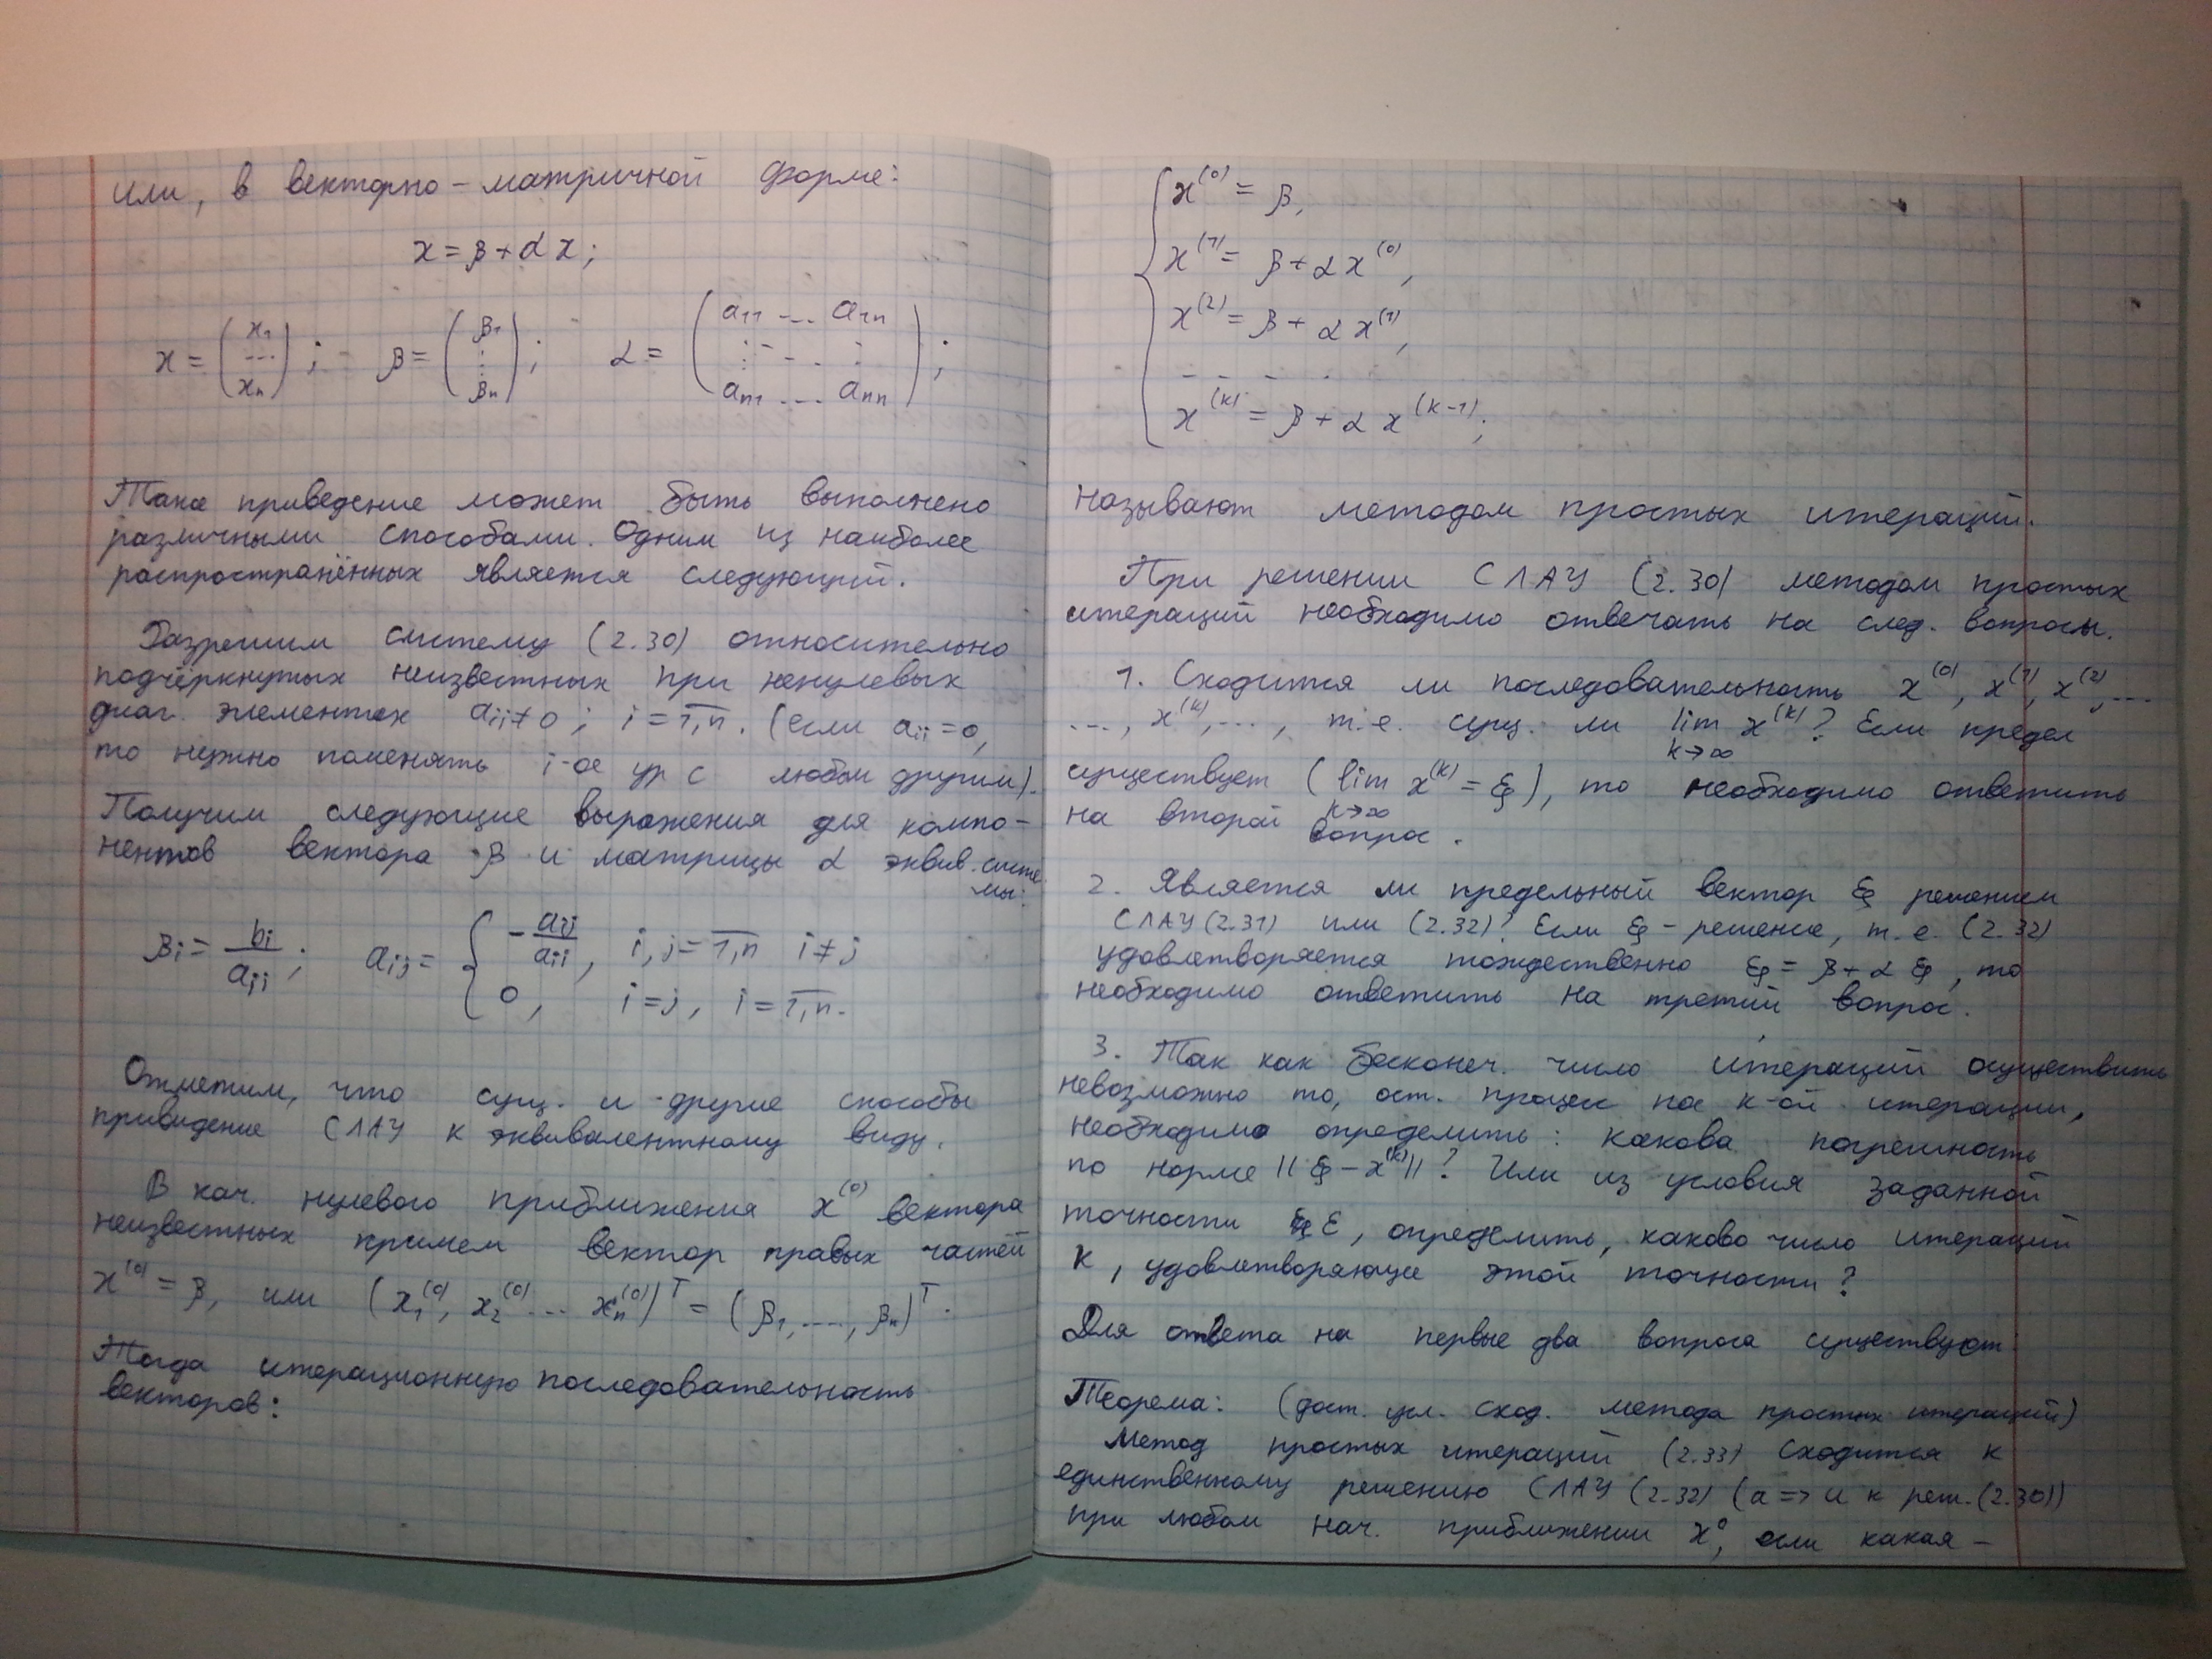 или, в векторно-матричной форме:
x = β + αx;
x = (x₁ ... xₙ); β = (β₁ ⋮ βₙ); α = (a₁₁ ... a₁ₙ ⋮ ... ⋮ aₙ₁ ... aₙₙ);
Такое приведение может быть выполнено
различными способами. Одним из наиболее
распространённых является следующий.
Разрешим систему (2.30) относительно
подчёркнутых неизвестных при ненулевых
диаг. элементах aᵢᵢ≠0; i = 1,n. (если aᵢᵢ=0,
то нужно поменять i-ое ур с любым другим).
Получим следующие выражения для компо-
нентов вектора β и матрицы α эквив. систе
мы:
βᵢ = bᵢ/aᵢᵢ; aᵢⱼ = { -aᵢⱼ/aᵢᵢ, i,j = 1,n i≠j
0, i=j, i = 1,n.
Отметим, что сущ. и другие способы
привидение СЛАУ к эквивалентному виду.
В кач. нулевого приближения x⁽⁰⁾ вектора
неизвестных примем вектор правых частей
x⁽⁰⁾ = β, или (x₁⁽⁰⁾, x₂⁽⁰⁾ ... xₙ⁽⁰⁾)ᵀ = (β₁, ..., βₙ)ᵀ.
Тогда итерационную последовательность
векторов:
x⁽⁰⁾ = β,
x⁽¹⁾ = β + αx⁽⁰⁾,
x⁽²⁾ = β + αx⁽¹⁾,
- - - - -
x⁽ᵏ⁾ = β + αx⁽ᵏ⁻¹⁾;
называют методом простых итераций.
При решении СЛАУ (2.30) методом простых
итераций необходимо отвечать на след. вопросы.
1. Сходится ли последовательность x⁽⁰⁾, x⁽¹⁾, x⁽²⁾,...
..., x⁽ᵏ⁾,..., т.е. сущ. ли lim x⁽ᵏ⁾? Если предел
k→∞
существует (lim x⁽ᵏ⁾ = ξ), то необходимо ответить
k→∞
на второй вопрос.
2. Является ли предельный вектор ξ решением
СЛАУ (2.31) или (2.32)? Если ξ - решение, т.е. (2.32)
удовлетворяется тождественно ξ = β + αξ, то
необходимо ответить на третий вопрос.
3. Так как бесконеч. число итераций осуществить
невозможно то, ост. процесс на k-ой итерации,
необходимо определить: какова погрешность
по норме ||ξ - x⁽ᵏ⁾||? Или из условия заданной
точности ε, определить, каково число итераций
k, удовлетворяющее этой точности?
Для ответа на первые два вопроса существуют
Теорема: (дост. усл. сход. метода простых итераций)
Метод простых итераций (2.33) сходится к
единственному решению СЛАУ (2.32) (а => и к реш. (2.30))
при любом нач. приближении x⁰, если какая -